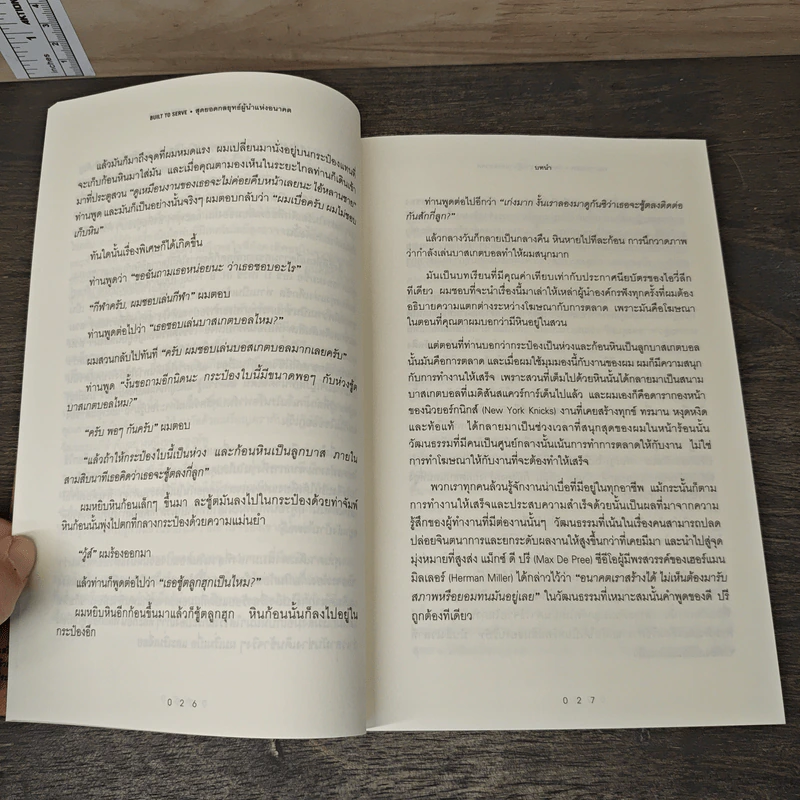 BUILT TO SERVE • สุดยอดกลยุทธ์ผู้นำแห่งอนาคต
แล้วมันก็มาถึงจุดที่ผมหมดแรง ผมเปลี่ยนมานั่งอยู่บนกระป๋องแทนที่
จะเก็บก้อนหินมาใส่มัน และเมื่อคุณตามองเห็นในระยะไกลท่านก็เดินเข้า
มาที่ประตูสวน “ดูเหมือนงานของเธอจะไม่ค่อยคืบหน้าเลยนะ ไอ้หลานชาย”
ท่านพูด และมันก็เป็นอย่างนั้นจริงๆ ผมตอบกลับว่า “ผมเบื่อครับ ผมไม่ชอบ
เก็บหิน”
ทันใดนั้นเรื่องพิเศษก็ได้เกิดขึ้น
ท่านพูดว่า “ขอฉันถามเธอหน่อยนะ ว่าเธอชอบอะไร”
“กีฬาครับ, ผมชอบเล่นกีฬา” ผมตอบ
ท่านพูดต่อไปว่า “เธอชอบเล่นบาสเกตบอลไหม?”
ผมสวนกลับไปทันที “ครับ ผมชอบเล่นบอสเกตบอลมากเลยครับ”
ท่านพูด “งั้นขอถามอีกนิดนะ กระป๋องใบนี้มีขนาดพอๆ กับห่วงชู้ต
บาสเกตบอลไหม?”
“ครับ พอๆ กันครับ” ผมตอบ
“แล้วถ้าให้กระป๋องใบนี้เป็นห่วง และก้อนหินเป็นลูกบาส ภายใน
สามสิบนาทีเธอคิดว่าเธอจะชู้ตลงกี่ลูก”
ผมหยิบหินก้อนเล็กๆ ขึ้นมา ละชู้ตมันลงไปในกระป๋องด้วยท่าจัมพ์
หินก้อนนั้นพุ่งไปตกที่กลางกระป๋องด้วยความแม่นยำ
“วู้ส์” ผมร้องออกมา
แล้วท่านก็พูดต่อไปว่า “เธอชู้ตลูกฮุกเป็นไหม?”
ผมหยิบหินอีกก้อนขึ้นมาแล้วก็ชู้ตลูกฮุก หินก้อนนั้นก็ลงไปอยู่ใน
กระป๋องอีก
026
บทนำ
ท่านพูดต่อไปอีกว่า “เก่งมาก งั้นเราลองมาดูกันซิว่าเธอจะชู้ตลงติดต่อ
กันสักกี่ลูก?”
แล้วกลางวันก็กลายเป็นกลางคืน หินหายไปทีละก้อน การนึกวาดภาพ
ว่ากำลังเล่นบาสเกตบอลทำให้ผมสนุกมาก
มันเป็นบทเรียนที่มีคุณค่าเทียบเท่ากับประกาศนียบัตรของไอวี่ลีก
ทีเดียว ผมชอบที่จะนำเรื่องนี้มาเล่าให้เหล่าผู้นำองค์กรฟังทุกครั้งที่ผมต้อง
อธิบายความแตกต่างระหว่างโฆษณากับการตลาด เพราะมันคือโฆษณา
ในตอนที่คุณตาผมบอกว่ามีหินอยู่ในสวน
แต่ตอนที่ท่านบอกว่ากระป๋องเป็นห่วงและก้อนหินเป็นลูกบาสเกตบอล
นั้นมันคือการตลาด และเมื่อผมใช้มุมมองนี้กับงานของผม ผมก็มีความสนุก
กับการทำงานให้เสร็จ เพราะสวนที่เต็มไปด้วยหินนั้นได้กลายมาเป็นสนาม
บาสเกตบอลที่เมดิสันสแควร์การ์เด้นไปแล้ว และผมเองก็คือดารากองหน้า
ของนิวยอร์กนิกส์ (New York Knicks) งานที่เคยสร้างทุกข์ ทรมาน หงุดหงิด
และท้อแท้ ได้กลายมาเป็นช่วงเวลาที่สนุกสุดของผมในหน้าร้อนนั้น
วัฒนธรรมที่มีคนเป็นศูนย์กลางนั้นเน้นการทำการตลาดให้กับงาน ไม่ใช่
การทำโฆษณาให้กับงานที่จะต้องทำให้เสร็จ
พวกเราทุกคนล้วนรู้จักงานน่าเบื่อที่มีอยู่ในทุกอาชีพ แม้กระนั้นก็ตาม
การทำงานให้เสร็จและประสบความสำเร็จด้วยนั้นเป็นผลที่มาจากความ
รู้สึกของผู้ทำงานที่มีต่องานนั้นๆ วัฒนธรรมที่เน้นในเรื่องคนสามารถปลด
ปล่อยจินตนาการและยกระดับผลงานให้สูงขึ้นกว่าที่เคยมีมา และนำไปสู่จุด
มุ่งหมายที่สูงส่ง แม็กซ์ ดี ปรี (Max De Pree) ซีอีโอผู้มีพรสวรรค์ของเฮอร์แมน
มิลเลอร์ (Herman Miller) ได้กล่าวไว้ว่า “อนาคตเราสร้างได้ ไม่เห็นต้องมารับ
สภาพหรือยอมทนมันอยู่เลย” ในวัฒนธรรมที่เหมาะสมนั้นคำพูดของดี ปรี
ถูกต้องทีเดียว
027